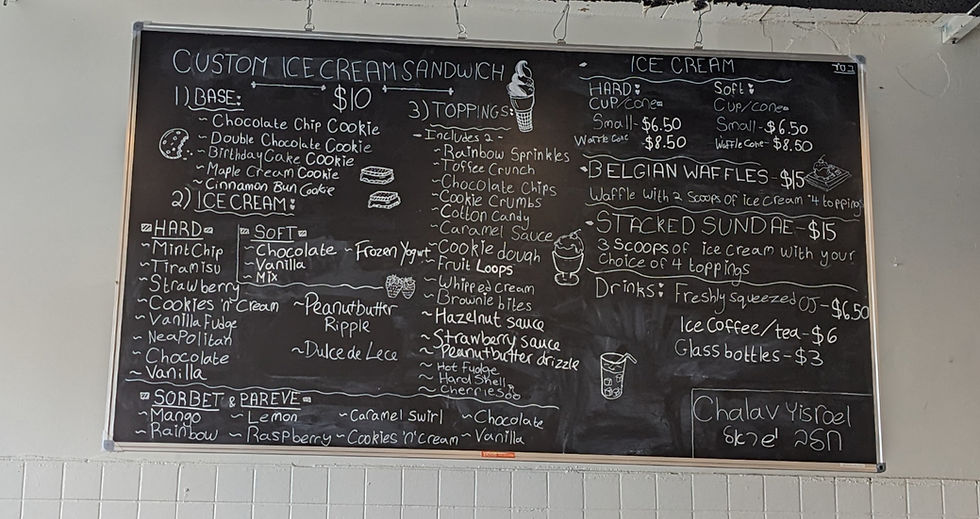 CUSTOM ICE CREAM SANDWICH
$10
1) BASE:
~ Chocolate Chip Cookie
~ Double Chocolate Cookie
~ Birthday Cake Cookie
~ Maple Cream Cookie
~ Cinnamon Bun Cookie
2) ICE CREAM:
HARD
~ Mint Chip
~ Tiramisu
~ Strawberry
~ Cookies 'n' Cream
~ Vanilla Fudge
~ NeaPolitan
~ Chocolate
~ Vanilla
SOFT
~ Chocolate ~ Frozen Yogurt
~ Vanilla
~ Mix
~ Peanutbutter
Ripple
~ Dulce de Lece
SORBET & PAREVE
~ Mango ~ Lemon ~ Caramel Swirl ~ Chocolate
~ Rainbow ~ Raspberry ~ Cookies 'n' cream ~ Vanilla
3) TOPPINGS:
- Includes 2 -
~ Rainbow Sprinkles
~ Toffee Crunch
~ Chocolate Chips
~ Cookie Crumbs
~ Cotton Candy
~ Caramel Sauce
~ Cookie dough
~ Fruit Loops
~ Whipped Cream
~ Brownie bites
~ Hazelnut sauce
~ Strawberry sauce
~ Peanutbutter drizzle
~ Hot Fudge
~ Hard Shell
~ Cherries
בס"ד
ICE CREAM
HARD:
CUP/cone
Small - $6.50
Waffle Cone - $8.50
Soft:
Cup/cone
Small - $6.50
Waffle Cone - $8.50
BELGIAN WAFFLES - $15
Waffle with 2 Scoops of ice cream + 4 topping
STACKED SUNDAE - $15
3 Scoops of ice cream with your
choice of 4 toppings
Drinks: Freshly squeezed OJ - $6.50
Ice Coffee/tea - $6
Glass bottles - $3
Chalav Yisroel
חלב ישראל